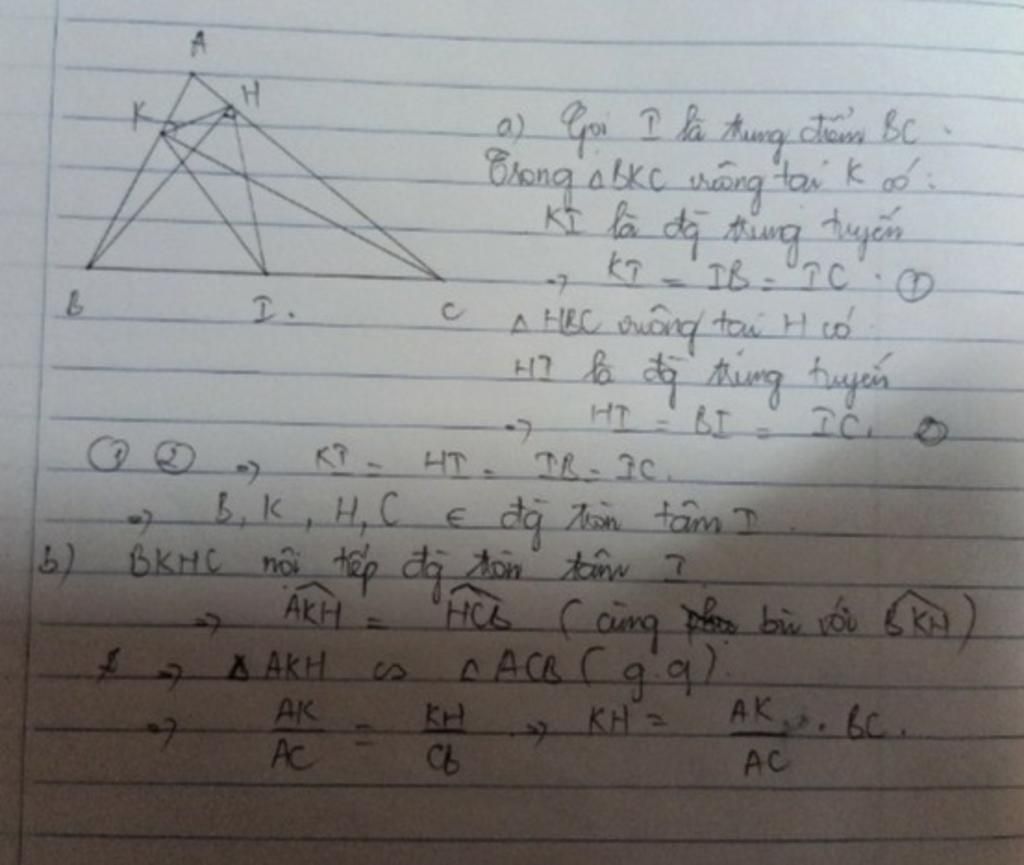 A
K
H
B
I.
C
a) Gọi I là trung điểm BC.
Trong △BKC vuông tại K có:
KI là đg trung tuyến
→ KI = IB = IC. ①
△HBC vuông tại H có
HI là đg trung tuyến
→ HI = BI = IC. ②
① ② → KI = HI = IB = IC.
→ B, K, H, C ∈ đg tròn tâm I.
b) BKHC nội tiếp đg tròn tâm I
→ \widehat{AKH} = \widehat{HCB} (cùng bù với \widehat{BKH})
→ △AKH ∽ △ACB (g.g).
→ AK/AC = KH/CB → KH = AK/AC . BC.